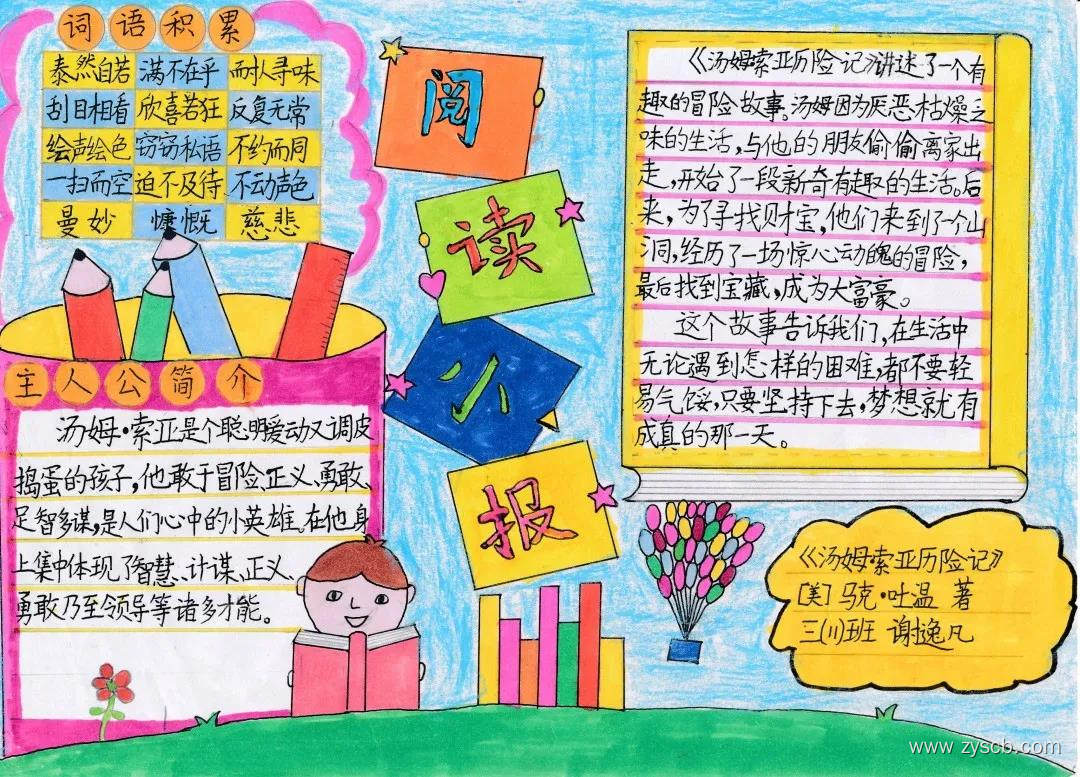 词语积累
泰然自若 满不在乎 耐人寻味
刮目相看 欣喜若狂 反复无常
绘声绘色 窃窃私语 不约而同
一扫而空 迫不及待 不动声色
曼妙 慷慨 慈悲
主人公简介
汤姆·索亚是个聪明爱动又调皮
捣蛋的孩子,他敢于冒险、正义、勇敢、
足智多谋,是人们心中的小英雄。在他身
上集中体现了智慧、计谋、正义、
勇敢乃至领导等诸多才能。
阅
读
小
报
《汤姆索亚历险记》讲述了一个有
趣的冒险故事。汤姆因为厌恶枯燥乏
味的生活,与他的朋友偷偷离家出
走,开始了一段新奇有趣的生活。后
来,为了寻找财宝,他们来到了个山
洞,经历了一场惊心动魄的冒险,
最后找到宝藏,成为大富豪。
这个故事告诉我们,在生活中
无论遇到怎样的困难,都不要轻
易气馁,只要坚持下去,梦想就有
成真的那一天。
《汤姆·索亚历险记》
[美] 马克·吐温 著
三(11)班 谢逸凡
www.zyscb.com